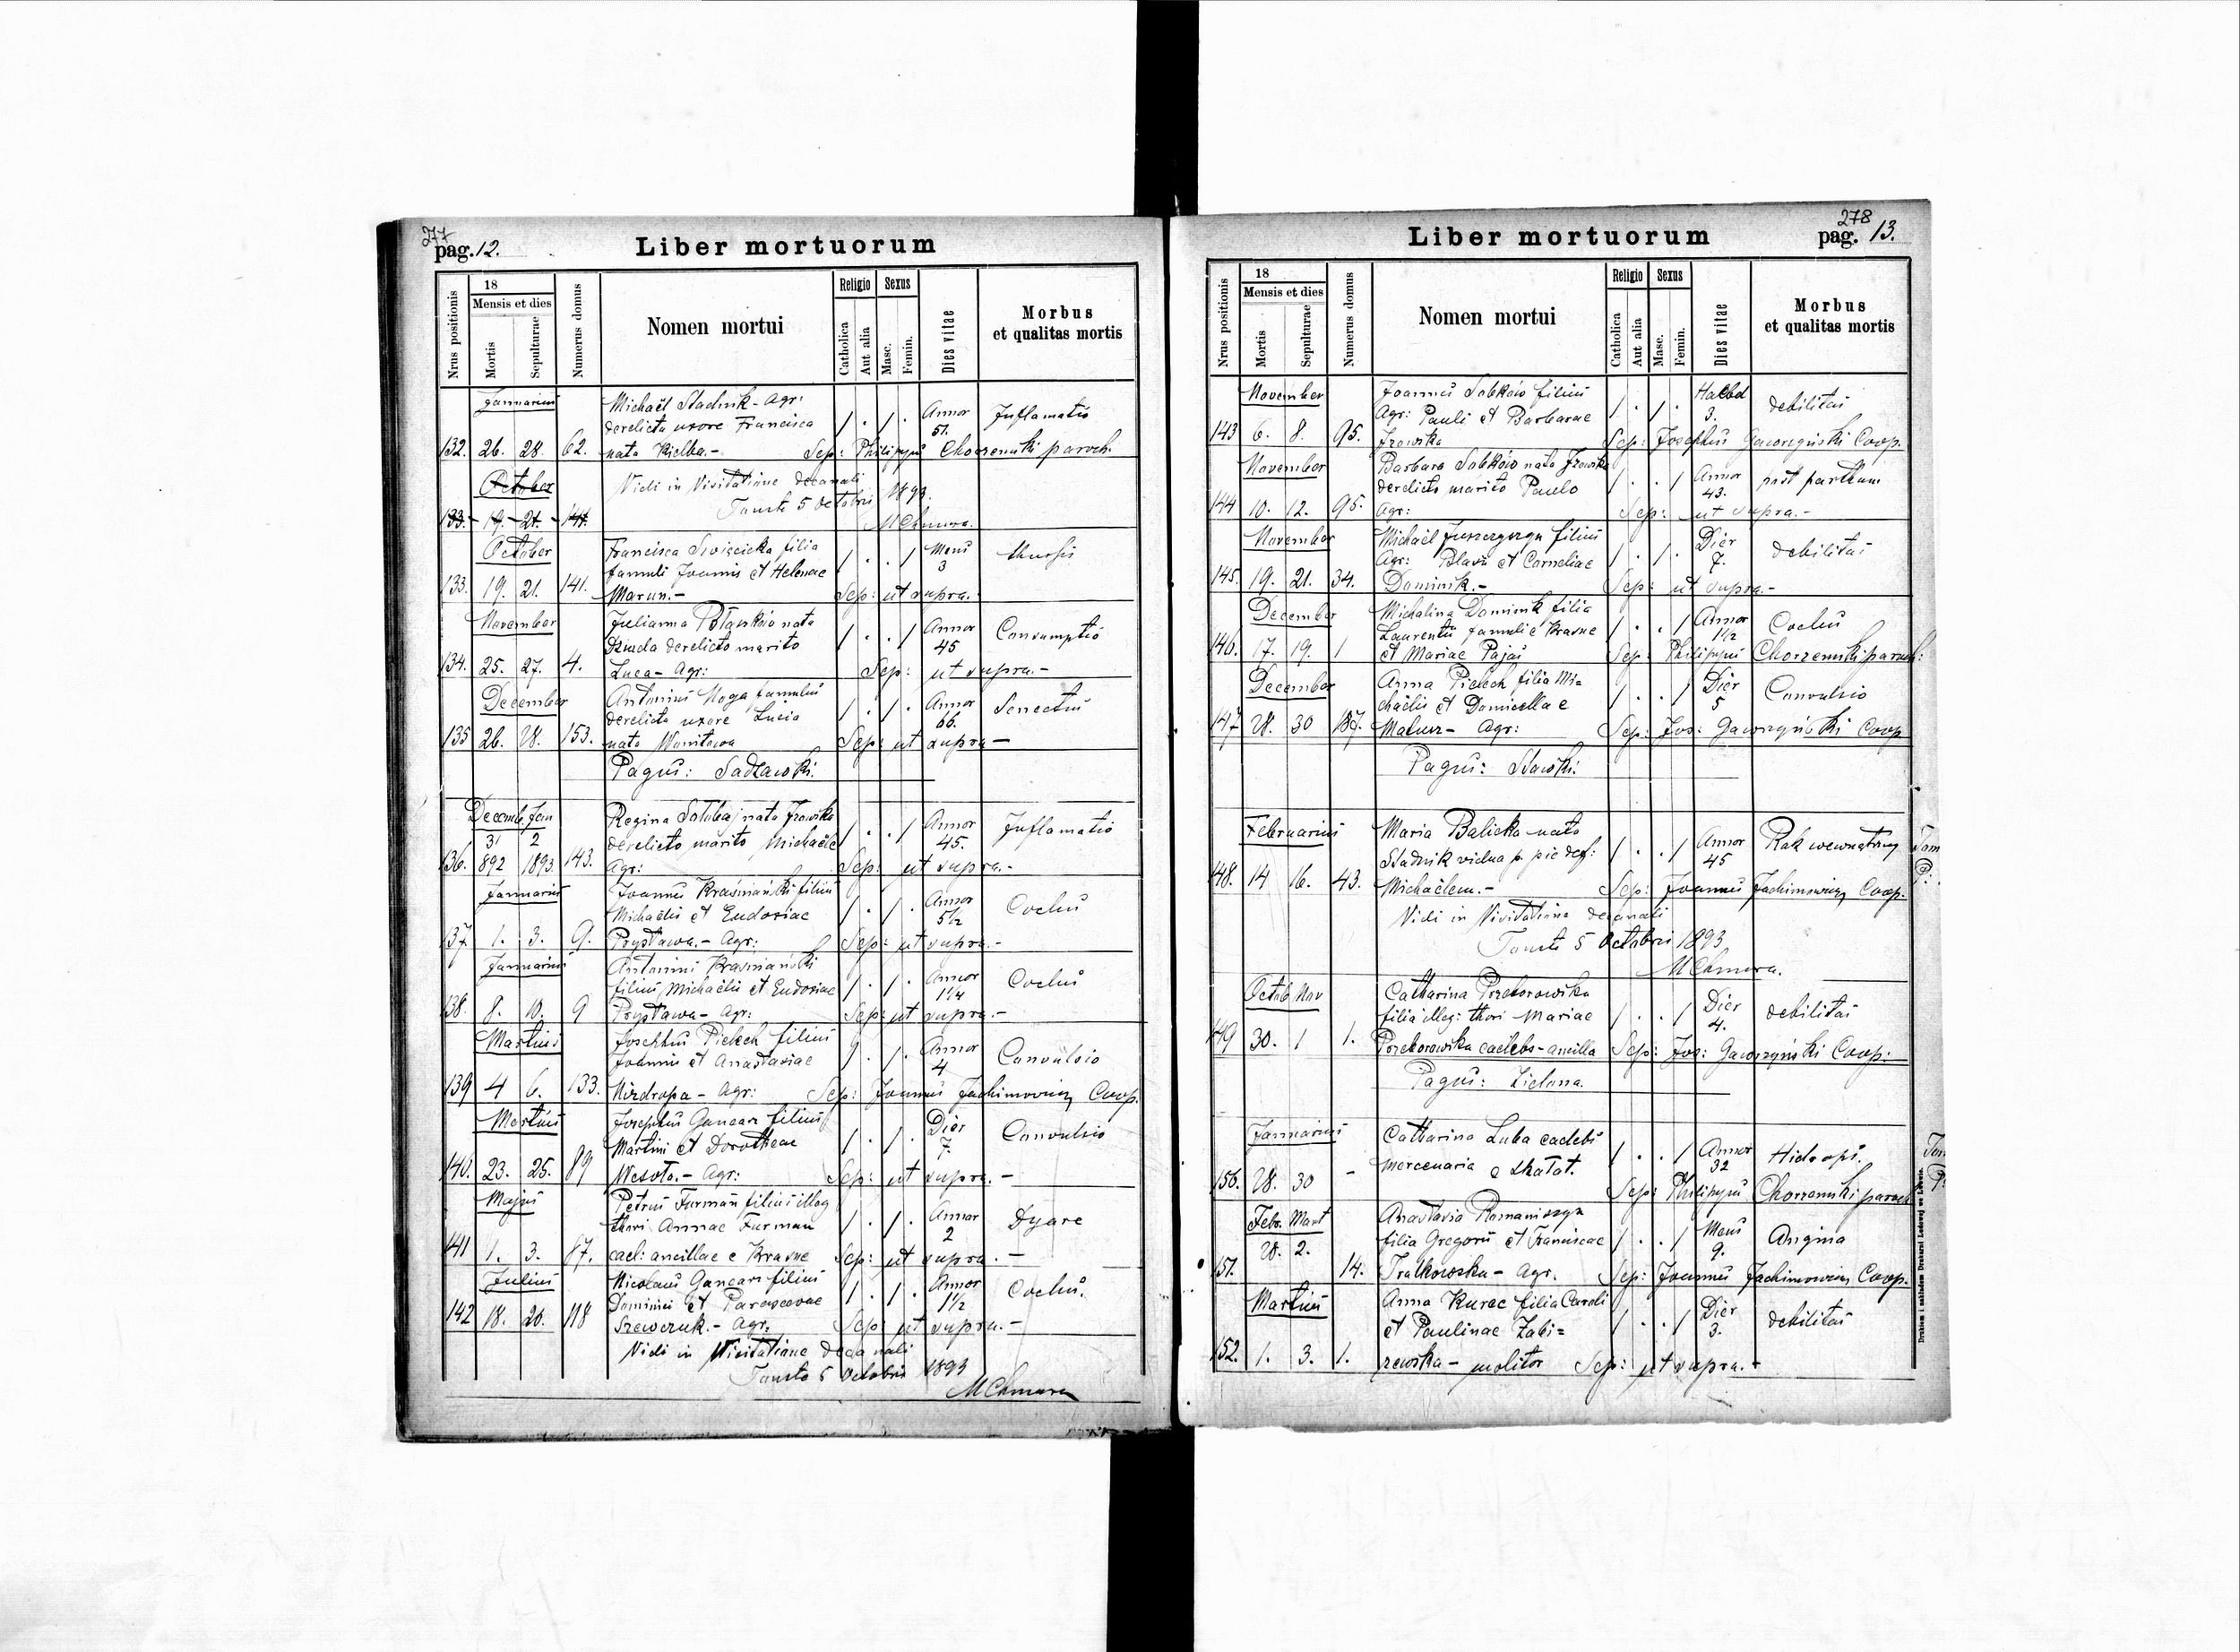 277
pag. 12.
Liber mortuorum
Nrus positionis
18
Mensis et dies
Mortis
Sepulturae
Numerus domus
Nomen mortui
Religio
Catholica
Aut alia
Sexus
Masc.
Femin.
Dies vitae
Morbus
et qualitas mortis
Januarius
Michaël Stadnik - Agr:
derelicta uxore Francisca
Annor 51.
Inflamatio
132. 26. 28. 62. nata Kielba.- Sep: Philippus Chorzemski paroch.
October
Vidi in Visitatione decanali
Touste 5 Octobris 1893.
133. - 19. - 21. - 141.
MChmura.
October
Francisca Swięcicka filia
famuli Joannis et Helenae
Mens 3
thussis
133. 19. 21. 141. Marun.- Sep: ut supra.
November
Julianna Potańków nata
Dziuda derelicto marito
Annor 45
Consumptio
134. 25. 27. 4. Luca - Agr: Sep: ut supra.-
December
Antonius Noga famulus
derelicta uxore Lucia
Annor 66.
Senectus
135 26. 28. 153. nata Sep: ut supra -
Pagus: Sadzawki.
Decemb. Jan
31 2
Regina Sołobaj nata Jzowska
derelicto marito Michaële
Annor 45.
Inflamatio
136. 892 1893. 143. Agr: Sep: ut supra.-
Januarius
Joannes Krasniański filius
Michaëlis et Eudoxiae
Annor 5 1/2
Coclus
137. 1. 3. 9. Prystawa.- Agr: Sep: ut supra.-
Januarius
Antonius Krasniański
filius Michaëlis et Eudoxiae
Annor 1 1/4
Coclus
138. 8. 10. 9 Prystawa - Agr: Sep: ut supra.-
Martius
Josephus Pielech filius
Joannis et Anastasiae
Annor 4
Convulsio
139 4 6. 133. Nizdropa - Agr: Sep: Joannes Jachimowicz Coop.
Martius
Josephus Gancarz filius
Martini et Dorotheae
Dier 7.
Convulsio
140. 23. 25. 89 Wesoła.- Agr: Sep: ut supra. -
Majus
Petrus Furman filius illeg
thori Annae Furman
Annor 2
Dyare
141 1. 3. 87. cael: ancillae e Krasne Sep: ut supra. -
Julius
Nicolaus Gancarz filius
Dominici et Parascevae
Annor 1 1/2
Coclus.
142 18. 20. 118 Szewczuk.- Agr: Sep: ut supra.-
Vidi in Visitatione decanali
Touste 5 Octobris 1893
MChmura
278
Liber mortuorum
pag. 13.
Nrus positionis
18
Mensis et dies
Mortis
Sepulturae
Numerus domus
Nomen mortui
Religio
Catholica
Aut alia
Sexus
Masc.
Femin.
Dies vitae
Morbus
et qualitas mortis
November
Joannes Sobków filius
Agr: Pauli et Barbarae
3.
debilitas
143 6. 8. 95. Jzowska Sep: Josephus Gaworzyński Coop.
November
Barbara Sobków nata Jzowska
derelicto marito Paulo
Annor 43.
post partum
144 10. 12. 95. Agr: Sep: ut supra.-
November
Michaël filius
Agr: Blasii et Corneliae
Dier 7.
debilitas
145. 19. 21. 34. Dominik.- Sep: ut supra.-
December
Michalina Dominik filia
Laurentii famuli e Krasne
Annor 1 1/2
Coclus
146. 17. 19. 1 et Mariae Pajas Sep: Philippus Chorzemski paroch:
December
Anna Pielech filia Mi=
chaëlis et Domicellae
Dier 5
Convulsio
147 28. 30 187. Matusz - Agr: Sep: Jos: Gaworzyński Coop
Pagus: Stawki.
Februarius
Maria Balicka nata
Stadnik vidua p. pie def:
Annor 45
Rak wewnątrzny
148. 14 16. 43. Michaëlem.- Sep: Joannes Jachimowicz Coop.
Vidi in Visitatione decanali
Touste 5 Octobris 1893
MChmura.
Octob Nov
Catharina Przeborowska
filia illeg: thori Mariae
Dier 4.
debilitas
149 30. 1 1. Przeborowska caelebs - ancilla Sep: Jos: Gaworzyński Coop:
Pagus: Zielona.
Januarius
Catharina Luba caelebs
mercenaria e Skałat.
Annor 32
Hidropi.
150. 28. 30 - Sep: Philippus Chorzemski paroch
Febr. Mart
Anastasia Romaniszyn
filia Gregorii et Franciscae
28. 2.
Mens 9.
Angina
151. 14. Tralkowska - Agr. Sep: Joannes Jachimowicz Coop.
Martius
Anna Kurac filia Caroli
et Paulinae Zabi=
Dier 3.
debilitas
152. 1. 3. 1. rzewska - molitor Sep: ut supra.-
Drukiem i nakładem Drukarni Ludowej we Lwowie.